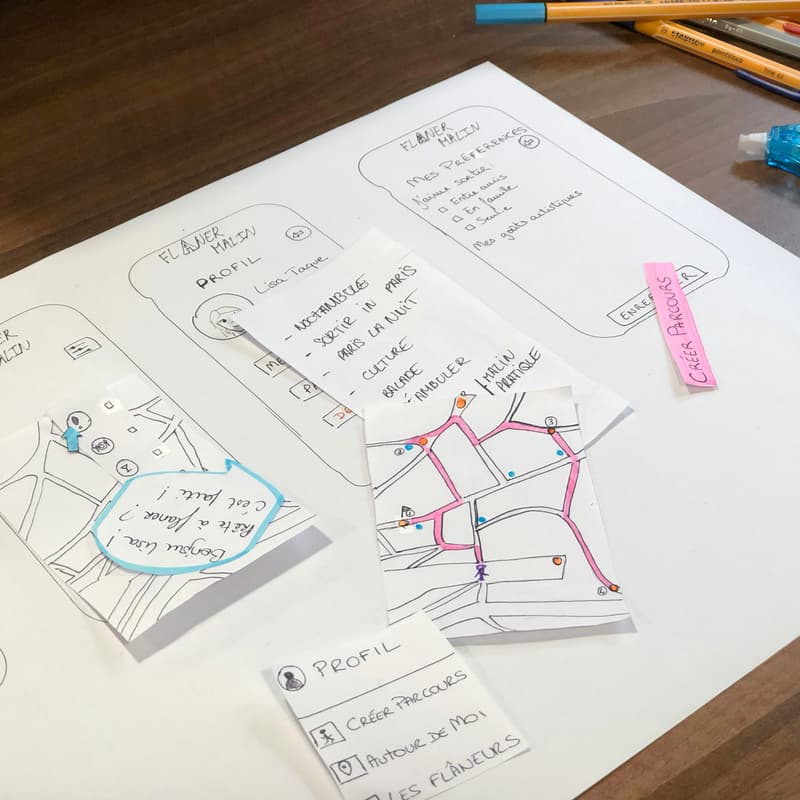 FLÂNER
MALIN
MES PRÉFÉRENCES
J'aime sortir :
Entre amis
En famille
Seule
Mes goûts artistiques
CRÉER PARCOURS
FLÂNER
MALIN
PROFIL
Lisa Taque
- NOCTAMBULE
- SORTIR IN PARIS
- PARIS LA NUIT
- CULTURE
BALADE
MALIN
PRATIQUE
ER
ALIN
Bonjour Lisa !
Prête à flâner ?
C'est parti !
2
3
4
PROFIL
CRÉER PARCOURS
AUTOUR DE MOI
LES FLÂNEURS